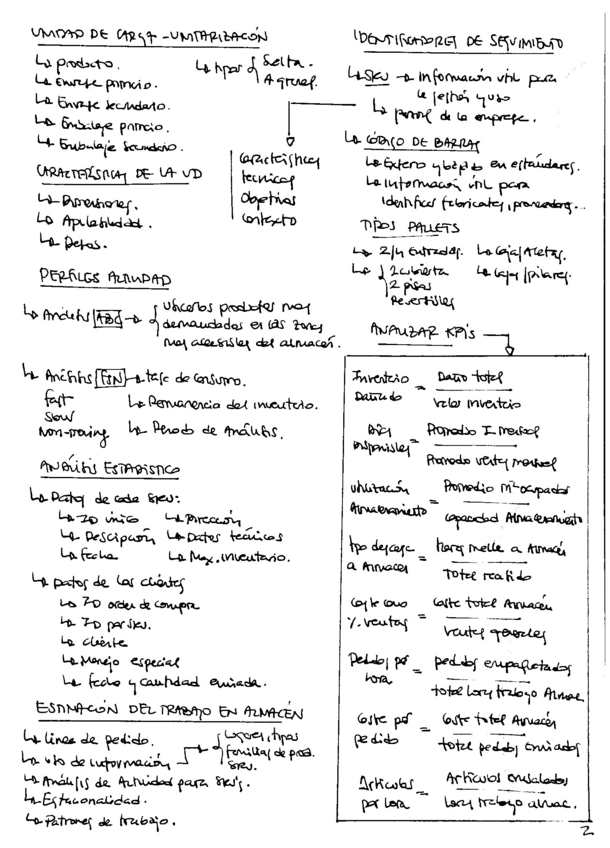 UNIDAD DE CARGA - UNITARIZACIÓN
↳ producto.
↳ Envase primario.
↳ Envase secundario.
↳ Embalaje primario.
↳ Embalaje secundario.
↳ tipos { Suelta.
Agranel.
CARACTERÍSTICAS DE LA UD
↳ Dimensiones.
↳ Apilabilidad.
↳ Pesos.
características
técnicas
Objetivos
Contexto
PERFILES ACTIVIDAD
↳ Análisis ABC → { Ubicar los productos más
demandados en las zonas
más accesibles del almacén.
↳ Análisis FSN → tasa de consumo.
fast
Slow
Non-moving
↳ Permanencia del inventario.
↳ Periodo de Análisis.
ANÁLISIS ESTADÍSTICO
↳ Datos de cada SKU:
↳ ID único ↳ Dirección
↳ Descripción ↳ Datos técnicos
↳ fecha ↳ Max. inventario.
↳ Datos de los clientes
↳ ID orden de compra
↳ ID por SKU.
↳ cliente
↳ Manejo especial
↳ fecha y cantidad enviada.
ESTIMACIÓN DEL TRABAJO EN ALMACÉN
↳ línea de pedido.
↳ uso de información
→ { tipos
familias de prod.
SKU.
↳ Análisis de Actividad para SKU's.
↳ Estacionalidad.
↳ Patrones de trabajo.
IDENTIFICADORES DE SEGUIMIENTO
↳ SKU → Información útil para
la gestión y uso
↳ de la empresa.
↳ CÓDIGO DE BARRAS
↳ Externo y basado en estándares.
↳ Información útil para
Identificar fabricantes, proveedores...
TIPOS PALLETS
↳ 2/4 Entradas. ↳ Caja/Aletas.
↳ { 2 cubierta ↳ Cajas/pilares.
2 pisos
Reversibles
ANALIZAR KPI's
Inventario Dañado = Daño total / Valor inventario
Días disponibles = Promedio I. mensual / Promedio venta mensual
Utilización Almacenamiento = Promedio m² ocupados / Capacidad Almacenamiento
tpo descarga a Almacén = Horas muelle a Almacén / Total recibido
Coste como % ventas = Coste total Almacén / Ventas generales
Pedidos por hora = pedidos empaquetados / total horas trabajo Almac
Coste por pedido = Coste total Almacén / total pedidos enviados
Artículos por hora = / horas trabajo almac.
2